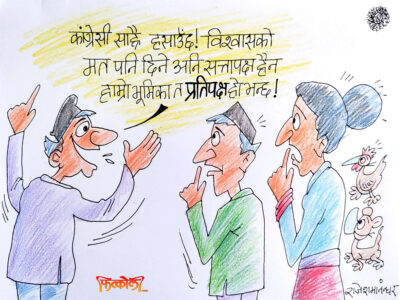 कांग्रेसी साह्रै हसाउँछ! विश्वासको
मत पनि दिने अनि सत्तापक्ष हैन
हाम्रो भूमिका त प्रतिपक्ष हो भन्छ!
फित्कौली
राजेशमानन्धर